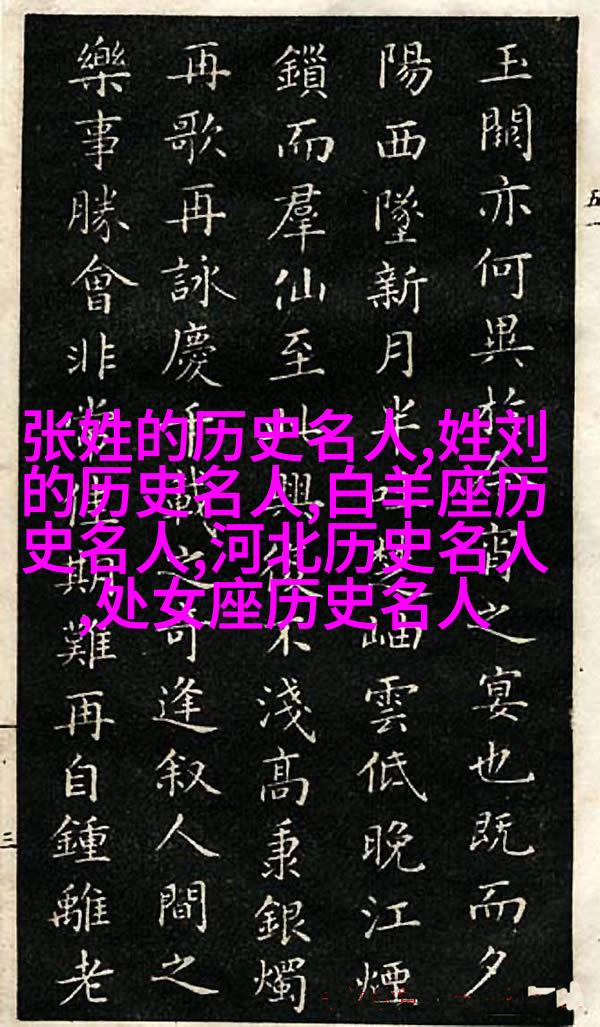 张姓的历史名人,姓刘
的历史名人,白羊座历
史名人,河北历史名人
,处女座历史名人
玉關亦何異於宵之宴也既而夕
陽西墜新月半吐楚岫雲低晚江煙
鎖而羣仙至此興復不淺高秉銀燭
再歌再詠慶千載之奇逢叙人間之
樂事勝會非常惟期難再自鍾離老
五
三